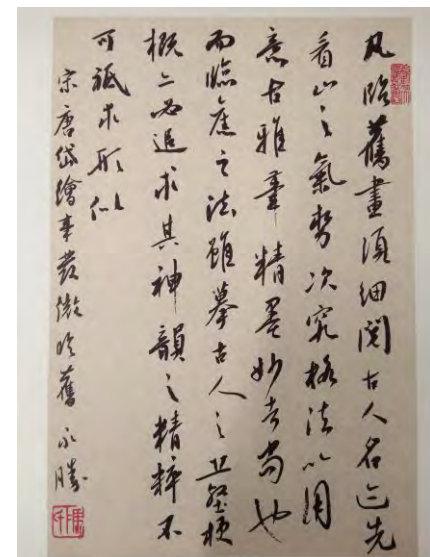 凡臨舊畫須細閱古人名迹先
看山之氣勢次究格法以用
意古雅筆精墨妙者尚也
而臨舊之法雖摹古人之丘壑梗
概亦必追求其神韻之精粹不
可祗求形似
宋唐岱繪事發微臨舊 永勝